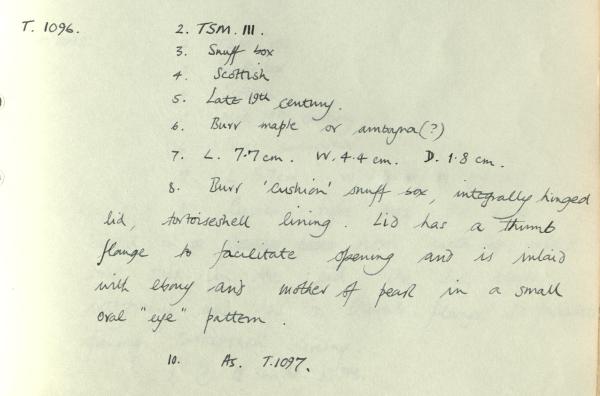 T. 1096. 2. TSM. III.
3. Snuff box
4. Scottish
5. Late 19th century.
6. Burr maple or amboyna (?)
7. L. 7.7 cm. W. 4.4 cm. D. 1.8 cm.
8. Burr 'cushion' snuff box, integrally hinged
lid, tortoiseshell lining. Lid has a thumb
flange to facilitate opening and is inlaid
with ebony and mother of pearl in a small
oval "eye" pattern.
10. As. T.1097.